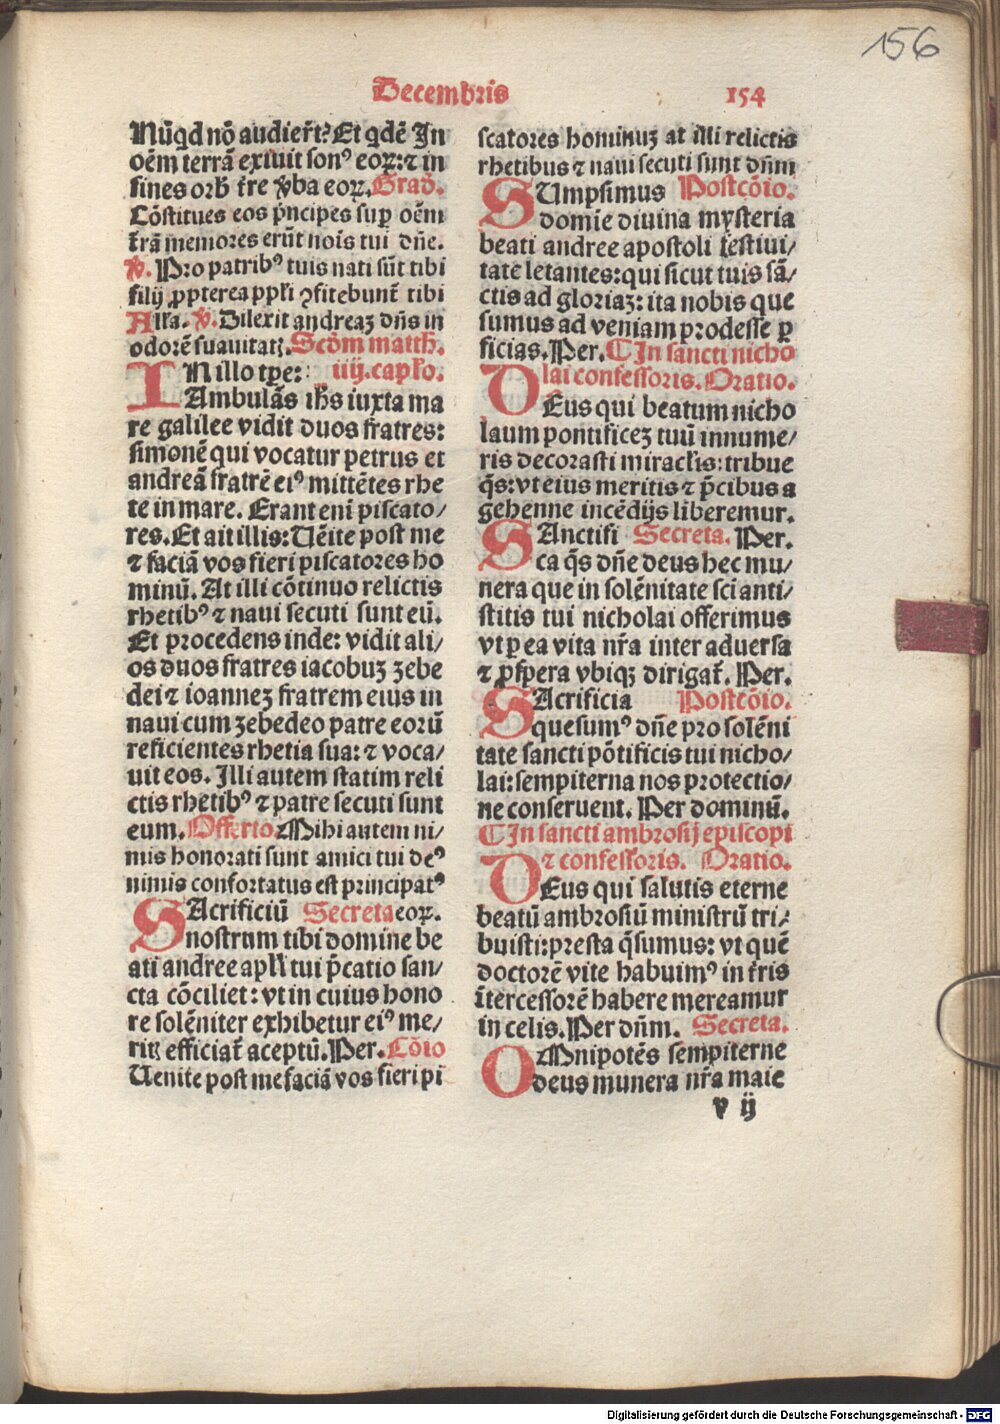 156
Decembris
154
Nūqd nō audier̄t? Et qdē In
oēm terrā exiuit sonꝰ eoꝝ: ⁊ in
fines orb̄ t̄re v̄ba eoꝝ. Grad̄.
Cōstitues eos p̄ncipes suꝑ oēm
t̄rā memores erūt noīs tui dn̄e.
v̄. Pro patribꝰ tuis nati sūt tibi
filij ꝓpterea ppl̄i ꝯfitebunt̄ tibi
Alľa. v̄. Dilexit andreaꝫ dn̄s in
odorē suauitatꝭ. Scd̄m matth̄.
IN illo tꝑe: iiij. capľo.
Ambulās ih̄s iuxta ma
re galilee vidit duos fratres:
simonē qui vocatur petrus et
andreā fratrē eiꝰ mittētes rhe
te in mare. Erant eni pіscato/
res. Et ait illis: Uēite post me
⁊ faciā vos fieri piscatores ho
minū. At illi cōtinuo relictis
rhetibꝰ ⁊ naui secuti sunt eū.
Et procedens inde: vidit ali/
os duos fratres iacobuꝫ ꝫebe
dei ⁊ ioanneꝫ fratrem eius in
naui cum ꝫebedeo patre eorū
reficientes rhetia sua: ⁊ voca/
uit eos. Illi autem statim reli
ctis rhetibꝰ ⁊ patre secuti sunt
eum. Offerto. Mihi autem ni/
mis honorati sunt amici tui deꝰ
nimis confortatus est principatꝰ
SAcrificiū Secreta eoꝝ.
nostrum tibi domine be
ati andree apľi tui p̄catio san/
cta cōciliet: vt in cuius hono
re solēniter exhibetur eiꝰ me/
ritꝭ efficiat̄ aceptū. Per. Cōio
Uenite post me faciā vos fieri pi
scatores hominuꝫ at illi relictis
rhetibus ⁊ naui secuti sunt dn̄m
SUmpsimus Postcōio.
domie diuina mysteria
beati andree apostoli festiui/
tate letantes: qui sicut tuis sā/
ctis ad gloriaꝫ: ita nobis que
sumus ad veniam prodesse ꝑ
ficias. Per. ¶ In sancti nicho
lai confessoris. Oratio.
DEus qui beatum nicho
laum pontificeꝫ tuū innume/
ris decorasti miracľis: tribue
q̄s: vt eius meritis ⁊ p̄cibus a
gehenne incēdijs liberemur.
SAnctifi Secreta. Per.
ca q̄s dn̄e deus hec mu/
nera que in solēnitate sci anti/
stitis tui nicholai offerimus
vt ꝑ ea vita nr̄a inter aduersa
⁊ ꝓspera vbiqꝫ dirigat̄. Per.
SAcrificia Postcōio.
quesumꝰ dn̄e pro solēni
tate sancti pōtificis tui nicho/
lai: sempiterna nos protectio/
ne conseruent. Per dominū.
¶ In sancti ambrosij episcopi
⁊ confessoris. Oratio.
DEus qui salutis eterne
beatū ambrosiū ministrū tri/
buisti: presta q̄sumus: vt quē
doctorē vite habuimꝰ in t̄ris
ītercessorē habere mereamur
in celis. Per dn̄m. Secreta.
OMnipotēs sempiterne
deus munera nr̄a maie
v ij
Digitalisierung gefördert durch die Deutsche Forschungsgemeinschaft - DFG